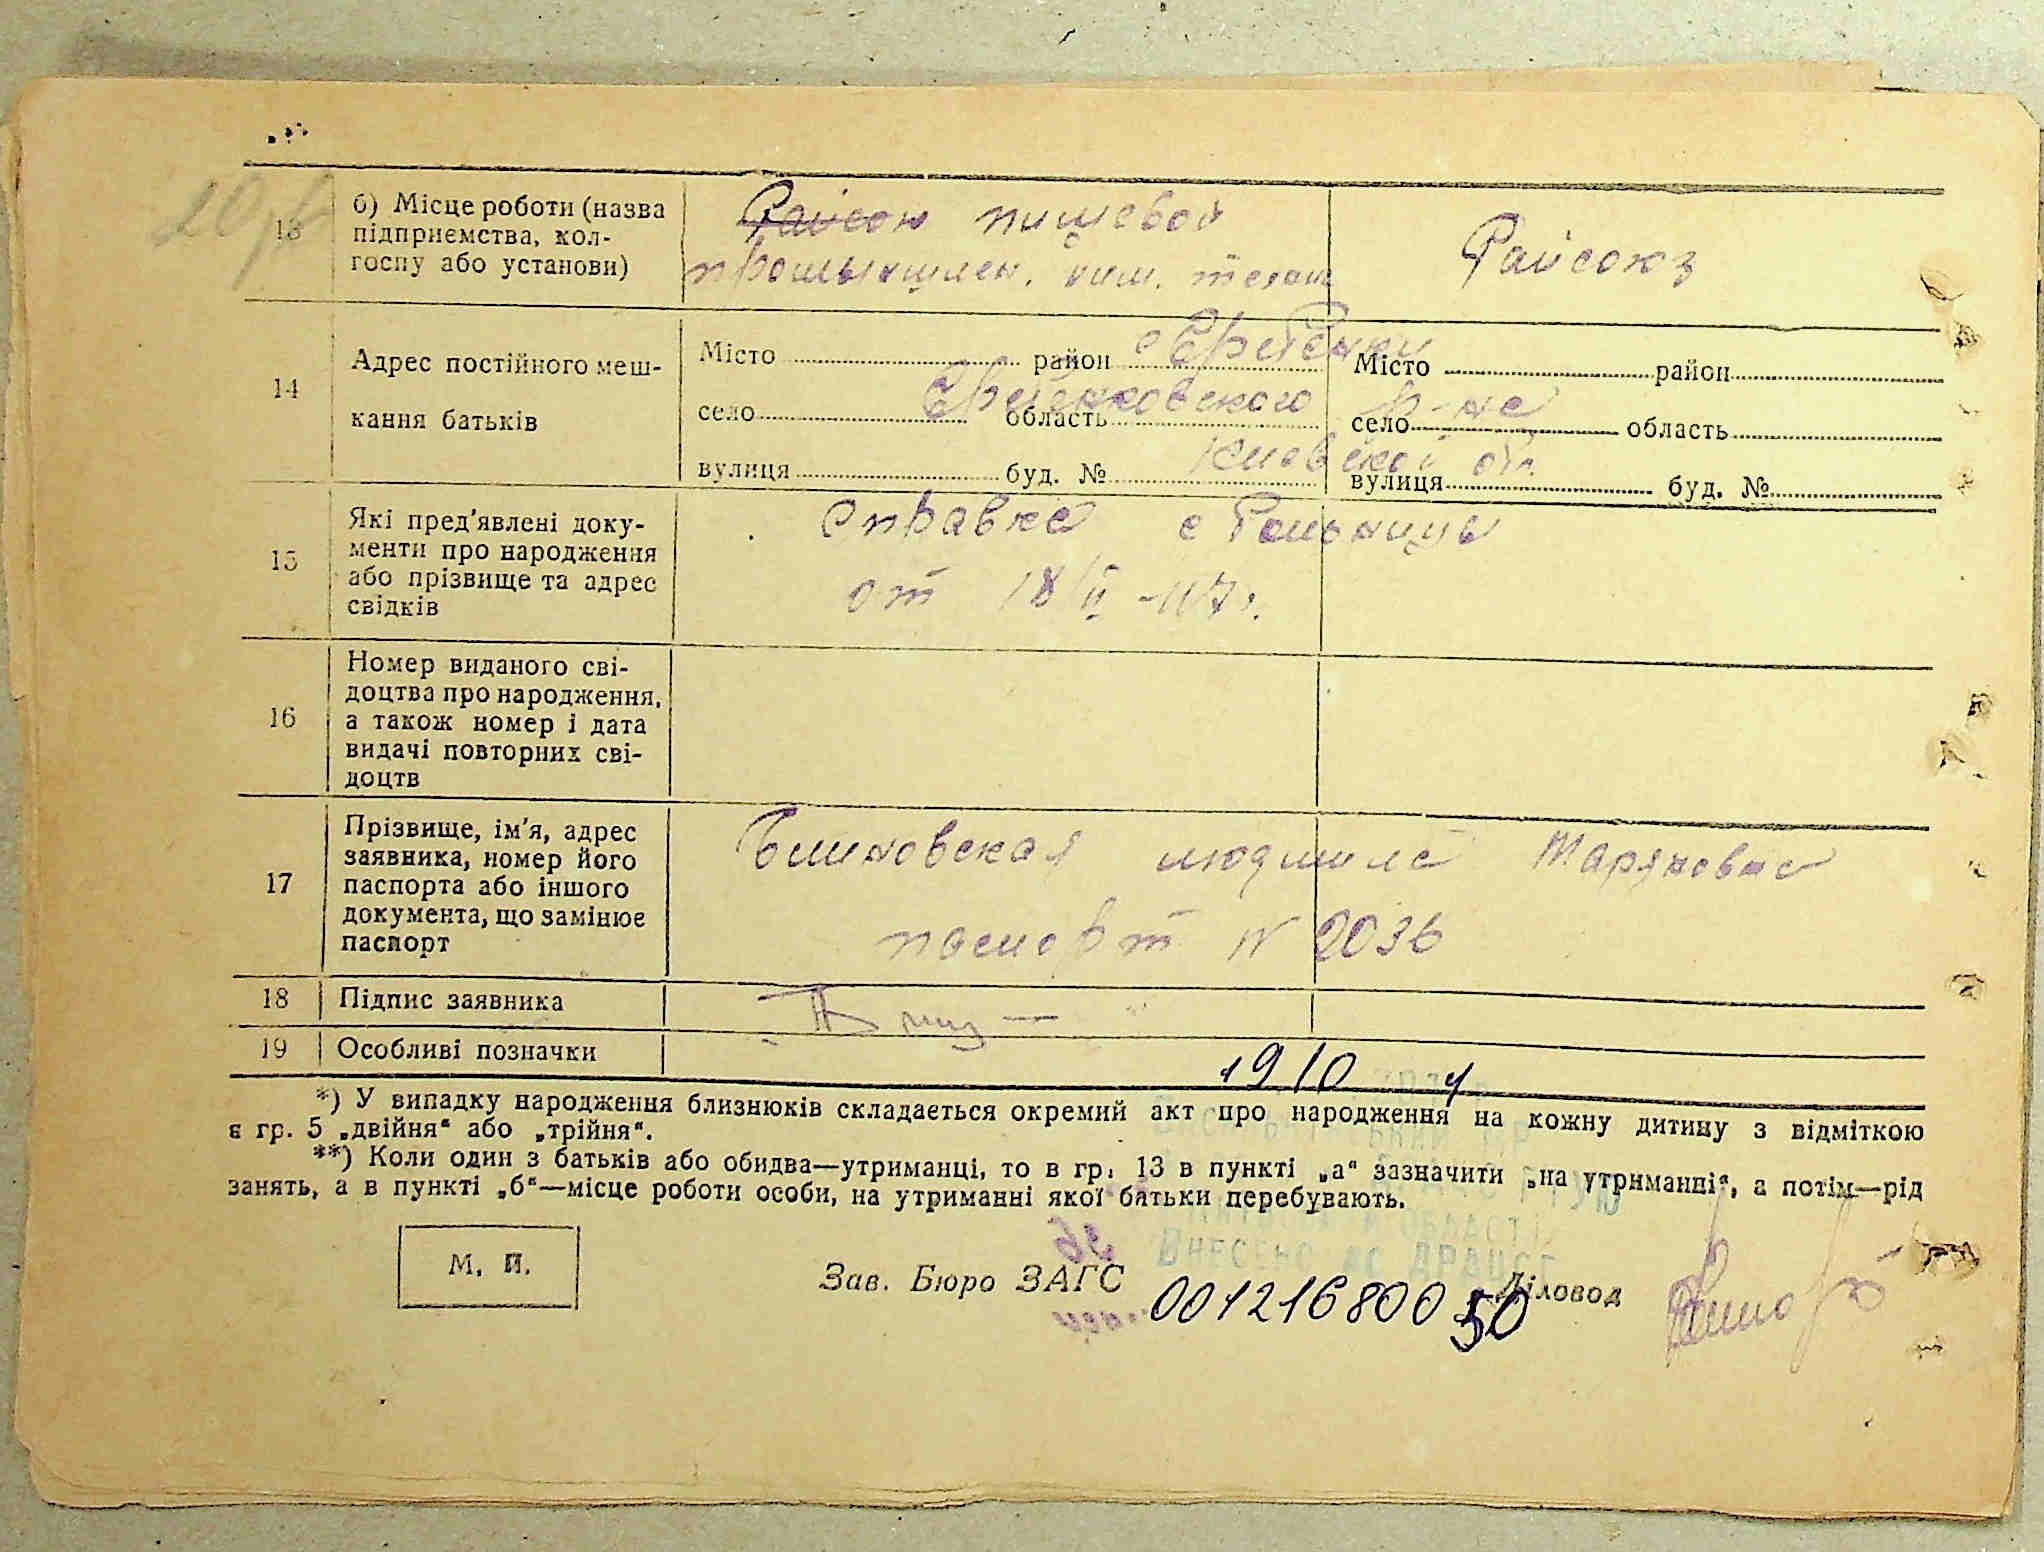 13 б) Місце роботи (назва
підприємства, кол-
госпу або установи)
Райсою пищевой
промышлен. хим. техник
Райсоюз
14 Адрес постійного меш-
кання батьків
Місто район
село область
вулиця буд. №
Місто район
село область
вулиця буд. №
р-на
15 Які пред'явлені доку-
менти про народження
або прізвище та адрес
свідків
Справка с больницы
от 18/II -47г.
16 Номер виданого сві-
доцтва про народження,
а також номер і дата
видачі повторних сві-
доцтв
17 Прізвище, ім'я, адрес
заявника, номер його
паспорта або іншого
документа, що замінює
паспорт
людмила Маряновна
паспорт N 2036
18 Підпис заявника
19 Особливі позначки
1910
*) У випадку народження близнюків складається окремий акт про народження на кожну дитину з відміткою
в гр. 5 „двійня“ або „трійня“.
**) Коли один з батьків або обидва—утриманці, то в гр. 13 в пункті „а“ зазначити „на утриманні“, а потім—рід
занять, а в пункті „б“—місце роботи особи, на утриманні якої батьки перебувають.
ВНЕСЕНО ДО ДРАЦСГ
М. П.
Зав. Бюро ЗАГС
Діловод
00121680050